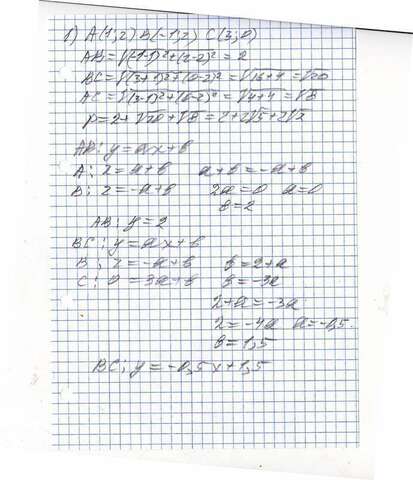 1) A(1;2) B(-1;2) C(3;0)
AB=√(-1-1)²+(2-2)² = 2
BC=√(3+1)²+(0-2)² = √16+4 = √20
AC=√(3-1)²+(0-2)² = √4+4 = √8
P=2+√20+√8 = 2+2√5+2√2
AB: y=ax+b
A: 2=a+b a+b=-a+b
B: 2=-a+b 2a=0 a=0
b=2
AB: y=2
BC: y=ax+b
B: 2=-a+b b=2+a
C: 0=3a+b b=-3a
2+a=-3a
2=-4a a=-0,5.
b=1,5
BC: y=-0,5x+1,5